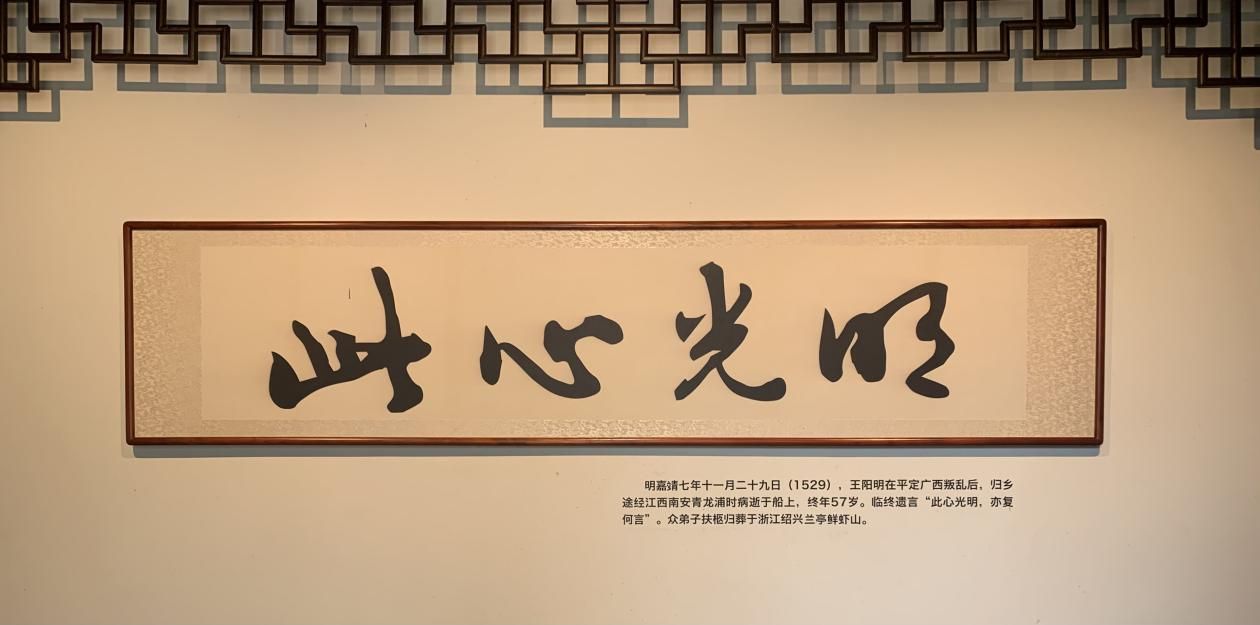 此心光明
明嘉靖七年十一月二十九日（1529），王阳明在平定广西叛乱后，归乡
途经江西南安青龙浦时病逝于船上，终年57岁。临终遗言“此心光明，亦复
何言”。众弟子扶柩归葬于浙江绍兴兰亭鲜虾山。